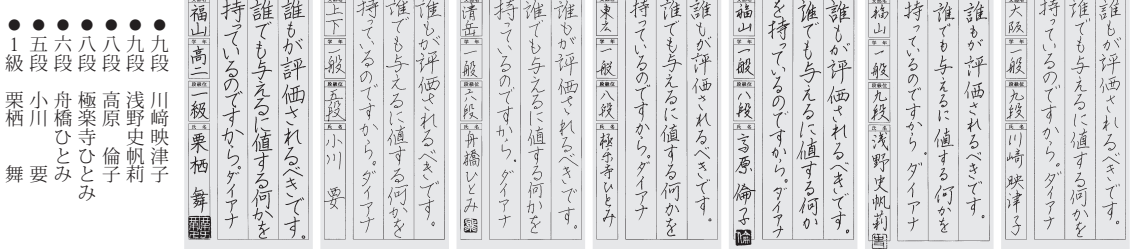 誰もが評価されるべきです。
誰でも与えるに値する何かを
持っているのですから。ダイアナ
大阪 学年 一般 段級位 九段 氏名 川﨑映津子
誰もが評価されるべきです。
誰でも与えるに値する何かを
持っているのですから。ダイアナ
福山 学年 一般 段級位 九段 氏名 浅野史帆莉
誰もが評価されるべきです。
誰でも与えるに値する何か
を持っているのですから。ダイアナ
福山 学年 一般 段級位 八段 氏名 高原倫子
誰もが評価されるべきです。
誰でも与えるに値する何かを
持っているのですから。ダイアナ
東広 学年 一般 段級位 八段 氏名 極楽寺ひとみ
誰もが評価されるべきです。
誰でも与えるに値する何かを
持っているのですから。ダイアナ
清岳 学年 一般 段級位 六段 氏名 舟橋ひとみ
誰もが評価されるべきです。
誰でも与えるに値する何かを
持っているのですから。ダイアナ
二下 学年 一般 段級位 五段 氏名 小川 要
誰もが評価されるべきです。
誰でも与えるに値する何かを
持っているのですから。ダイアナ
福山 学年 高二 段級位 一級 氏名 栗栖 舞
●九段 川﨑映津子
●九段 浅野史帆莉
●八段 高原 倫子
●八段 極楽寺ひとみ
●六段 舟橋ひとみ
●五段 小川 要
●1級 栗栖 舞